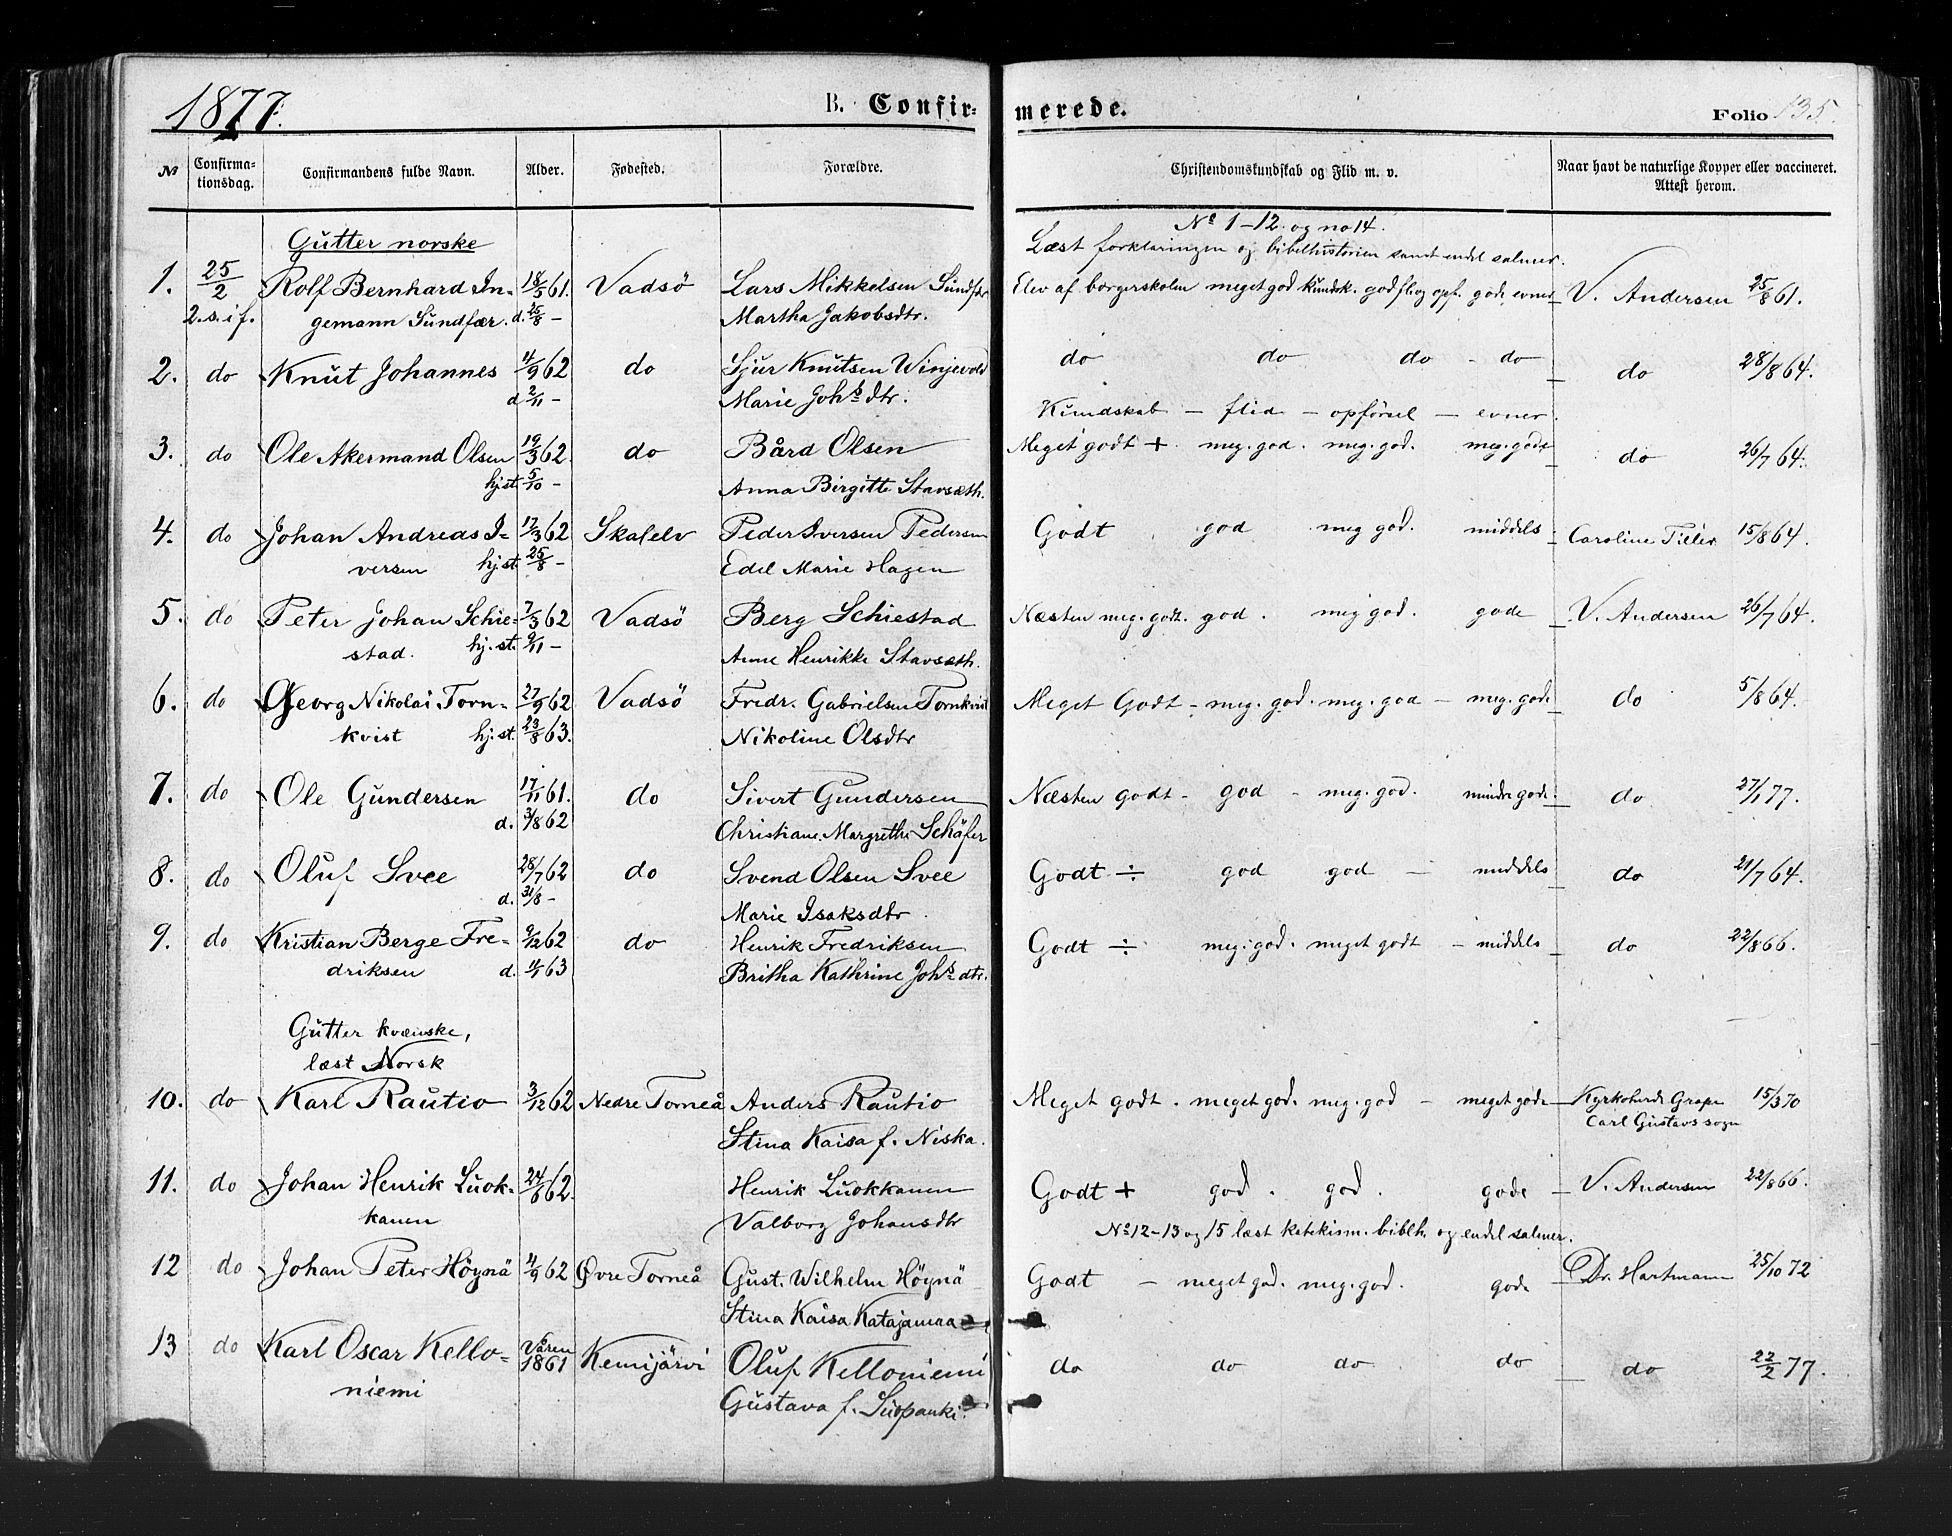 1877.
B. Confirmerede.
Folio 135.
№ Confirmationsdag. Confirmandens fulde Navn. Alder. Fødested. Forældre. Christendomskundskab og Flid m. v. Naar havt de naturlige Kopper eller vaccineret. Attest herom.
Gutter norske
No 1–12. og no 14.
Læst forklaringen og bibelhistorien samt endel salmer.
1. 25/2 Rolf Bernhard In- 18/5 61. Vadsö Lars Mikkelsen Sundfær Elev af borgerskolen meget god kundsk. god flid og opf. gode evner V. Andersen 25/8 61.
2. s. i f. gemann Sundfær. d. 25/8 – Martha Jakobsdtr.
2. do Knut Johannes 4/9 62 do Sjur Knutsen Winjevold do do do – do do 28/8 64.
d 2/11 – Marie Johs dtr.
Kundskab – flid – opførsel – evner.
3. do Ole Akermand Olsen 19/3 62. do Bård Olsen Meget godt + meg. god. meg. god. meg. gode do 26/7 64.
hj.st. 5/10 – Anna Birgitte Stavsæth.
4. do Johan Andreas I- 17/3 62 Skalelv Peder Iversen Pedersen Godt god meg god. middels Caroline Tiller 15/8 64.
versen hj.st. 25/8 – Edel Marie Hagen
5. do Peter Johan Schie- 7/3 62 Vadsö Berg Schiestad Næsten meg. godt. god. meg god. gode V. Andersen 26/7 64.
stad. hj. st. 9/11 – Anne Henrikke Stavsæth.
6. do Georg Nikolai Torn- 27/9 62 Vadsö Fredr. Gabrielsen Tornkvist Meget Godt – meg. god. meg. god – meg. gode do 5/8 64.
kvist hj. st. 23/8 63. Nikoline Olsdtr
7. do Ole Gundersen 17/11 61. do Sivert Gundersen Næsten godt – god – meg. god. mindre gode. do 27/1 77.
d. 3/8 62 Christiane Margrethe Schäfer
8. do Oluf Svee 28/7 62 do Svend Olsen Svee Godt ÷ god god – middels do 21/7 64.
d. 31/8 – Marie Isaksdtr.
9. do Kristian Berge Fre- 9/12 62 do Henrik Fredriksen Godt ÷ meg. god. meget godt – middels do 22/8 66.
driksen d. 4/1 63 Britha Kathrine Johs dtr.
Gutter kvænske,
læst Norsk
10. do Karl Rautio 3/12 62 Nedre Torneå Anders Rautio Meget godt. meget god. meg. god – meget gode Kyrkoherde Grape 15/3 70
Stina Kaisa f. Niska. Carl Gustavs sogn
11. do Johan Henrik Luok- 24/6 62. Henrik Luokkanen Godt + god. god. gode V. Andersen 22/8 66.
kanen Valborg Johansdtr
No 12–13 og 15 læst katekism. biblh. og endel salmer.
12 do Johan Peter Höynä 4/9 62 Øvre Torneå Gust. Wilhelm Höynä Godt – meget god. meg. god. gode Dr. Hartmann 25/10 72
Stina Kaisa Katajamaa
13 do Karl Oscar Kello- Våren 1861 Kemijärvi Oluf Kelloniemi do do do do do 22/2 77.
niemi Gustava f. Suopanki.